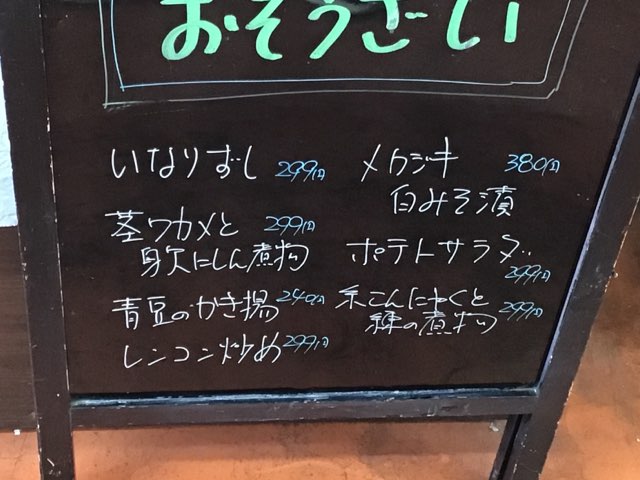 おそうざい
いなりずし 299円
茎ワカメと 299円
身欠にしん煮物
青豆のかき揚 240円
レンコン炒め 299円
メカジキ 380円
白みそ漬
ポテトサラダ
299円
糸こんにゃくと
鶏の煮物 299円